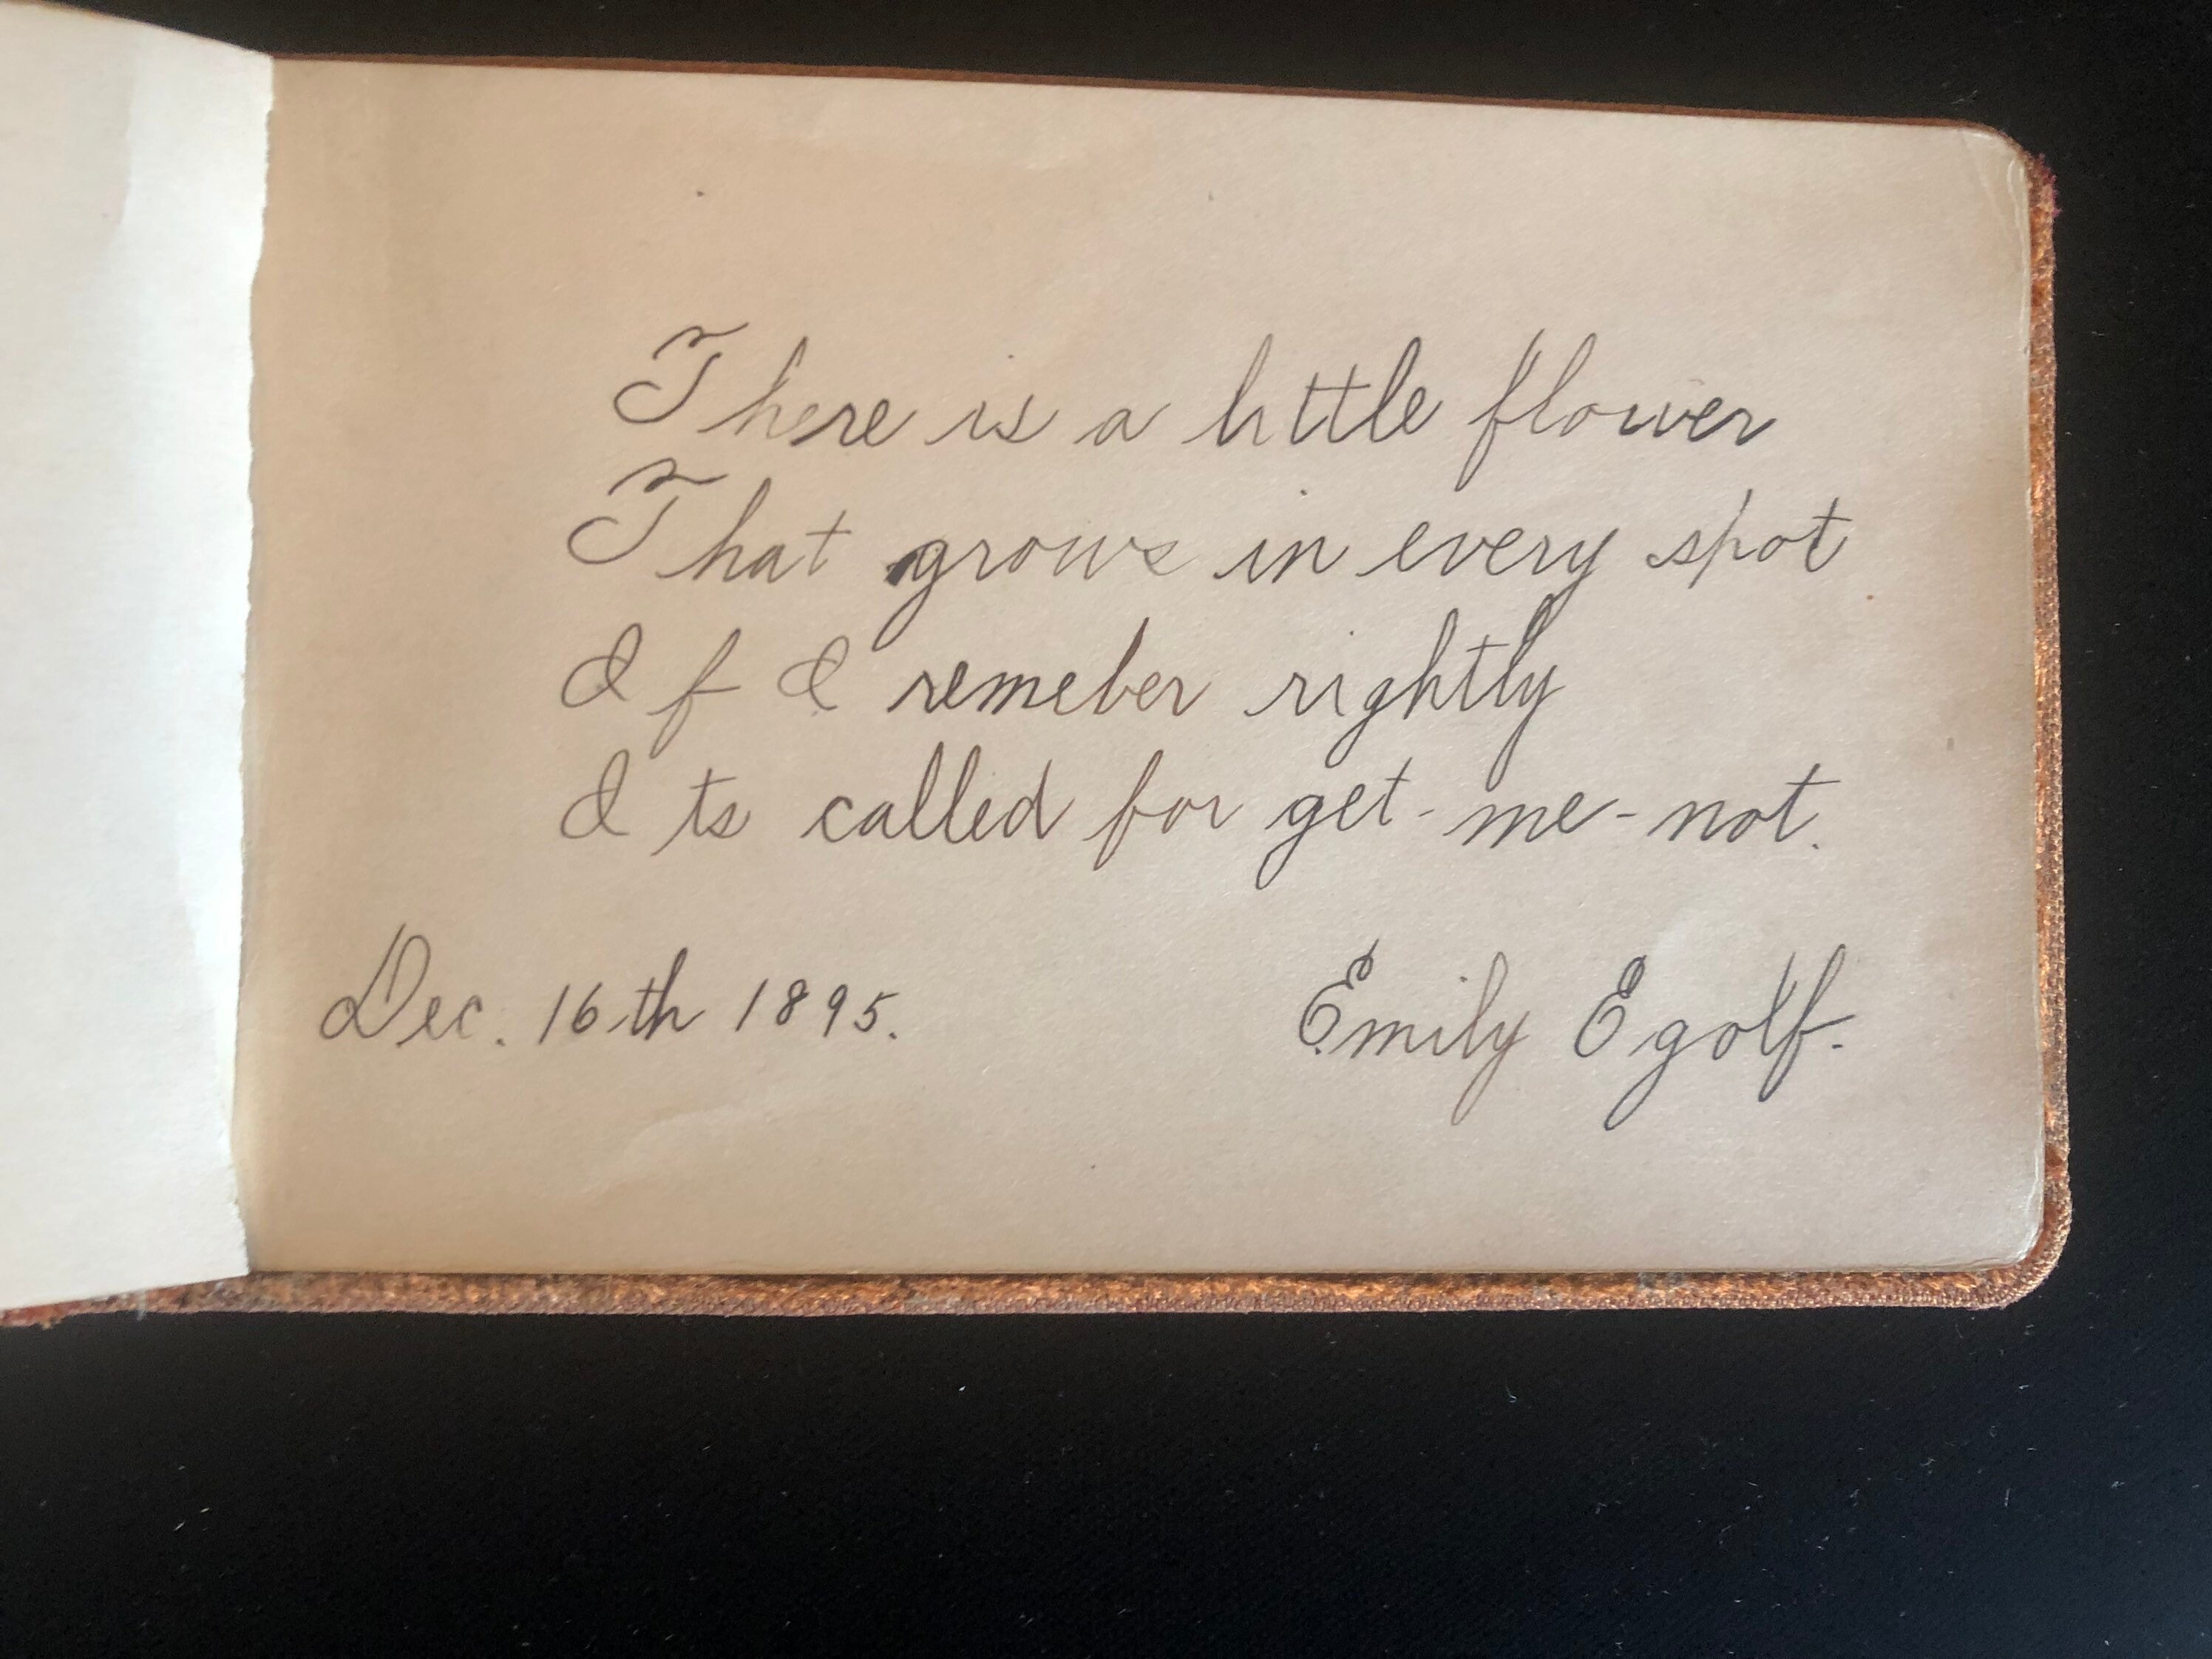 There is a little flower
That grows in every spot
If I remeber rightly
Its called for get-me-not.
Dec. 16th 1895. Emily Egolf.